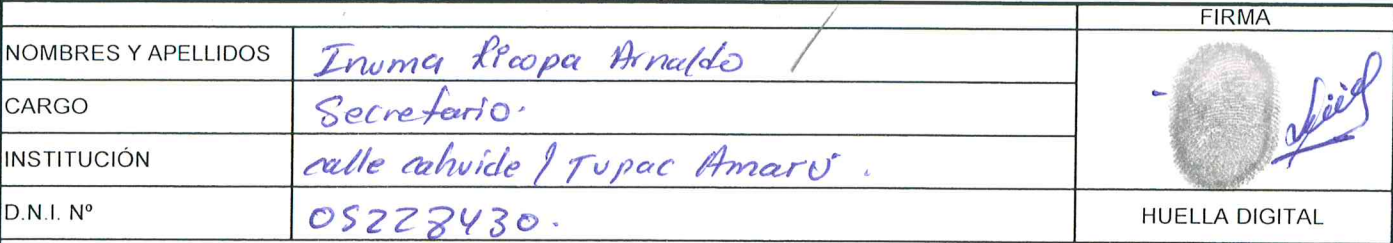 FIRMA
NOMBRES Y APELLIDOS Inuma Ricopa Arnaldo
CARGO Secretario.
INSTITUCIÓN calle cahuide / Tupac Amarú.
D.N.I. Nº 05228430.
HUELLA DIGITAL